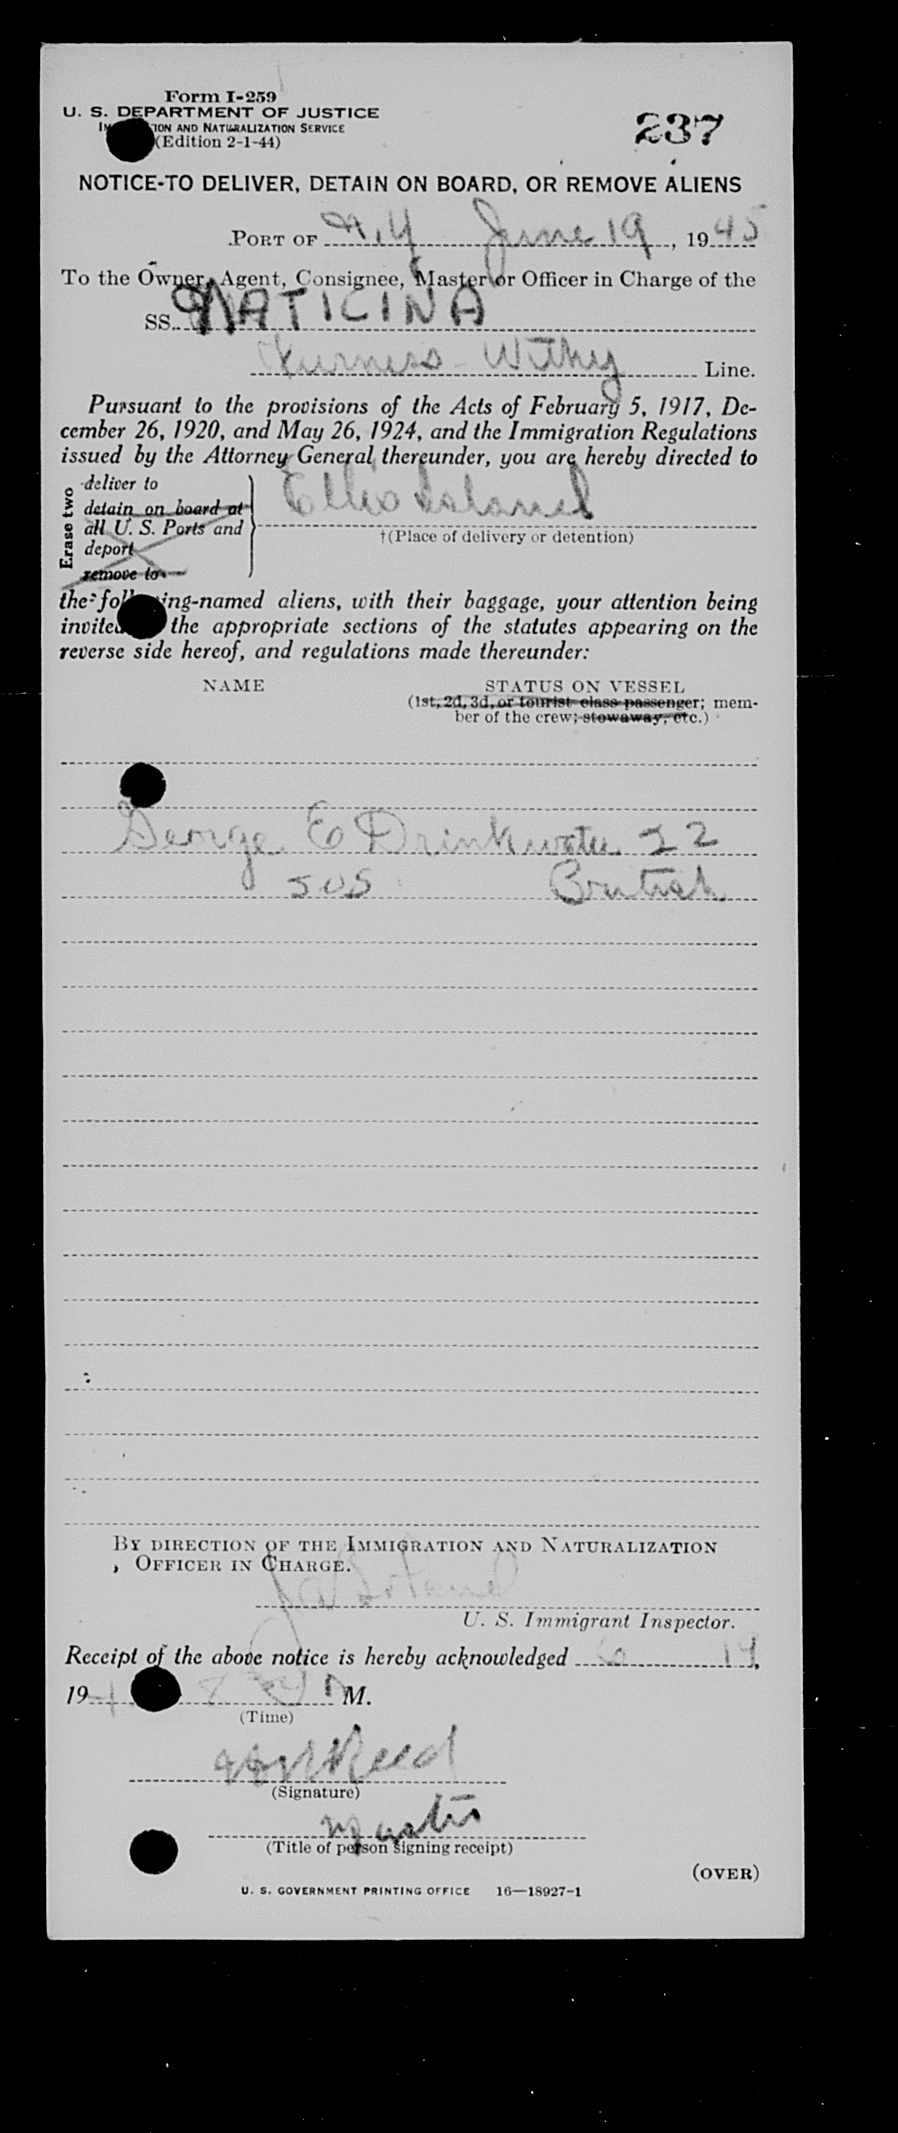 Form I-259
U. S. DEPARTMENT OF JUSTICE
ION AND NATURALIZATION SERVICE
(Edition 2-1-44)
237
NOTICE-TO DELIVER, DETAIN ON BOARD, OR REMOVE ALIENS
PORT OF N.Y June 19, 1945
To the Owner, Agent, Consignee, Master or Officer in Charge of the
SS. NATICINA
Furness - Withy Line.
Pursuant to the provisions of the Acts of February 5, 1917, De-
cember 26, 1920, and May 26, 1924, and the Immigration Regulations
issued by the Attorney General thereunder, you are hereby directed to
Erase two
deliver to
detain on board at
all U. S. Ports and
deport
remove to
Ellis Island
†(Place of delivery or detention)
the following-named aliens, with their baggage, your attention being
invited the appropriate sections of the statutes appearing on the
reverse side hereof, and regulations made thereunder:
NAME STATUS ON VESSEL
(1st, 2d, 3d, or tourist class passenger; mem-
ber of the crew; stowaway, etc.)
George E Drinkwater 22
SUS British
BY DIRECTION OF THE IMMIGRATION AND NATURALIZATION
OFFICER IN CHARGE.
U. S. Immigrant Inspector.
Receipt of the above notice is hereby acknowledged 6 19,
194 M.
(Time)
Reed
(Signature)
Master
(Title of person signing receipt)
(OVER)
U. S. GOVERNMENT PRINTING OFFICE 16—18927-1